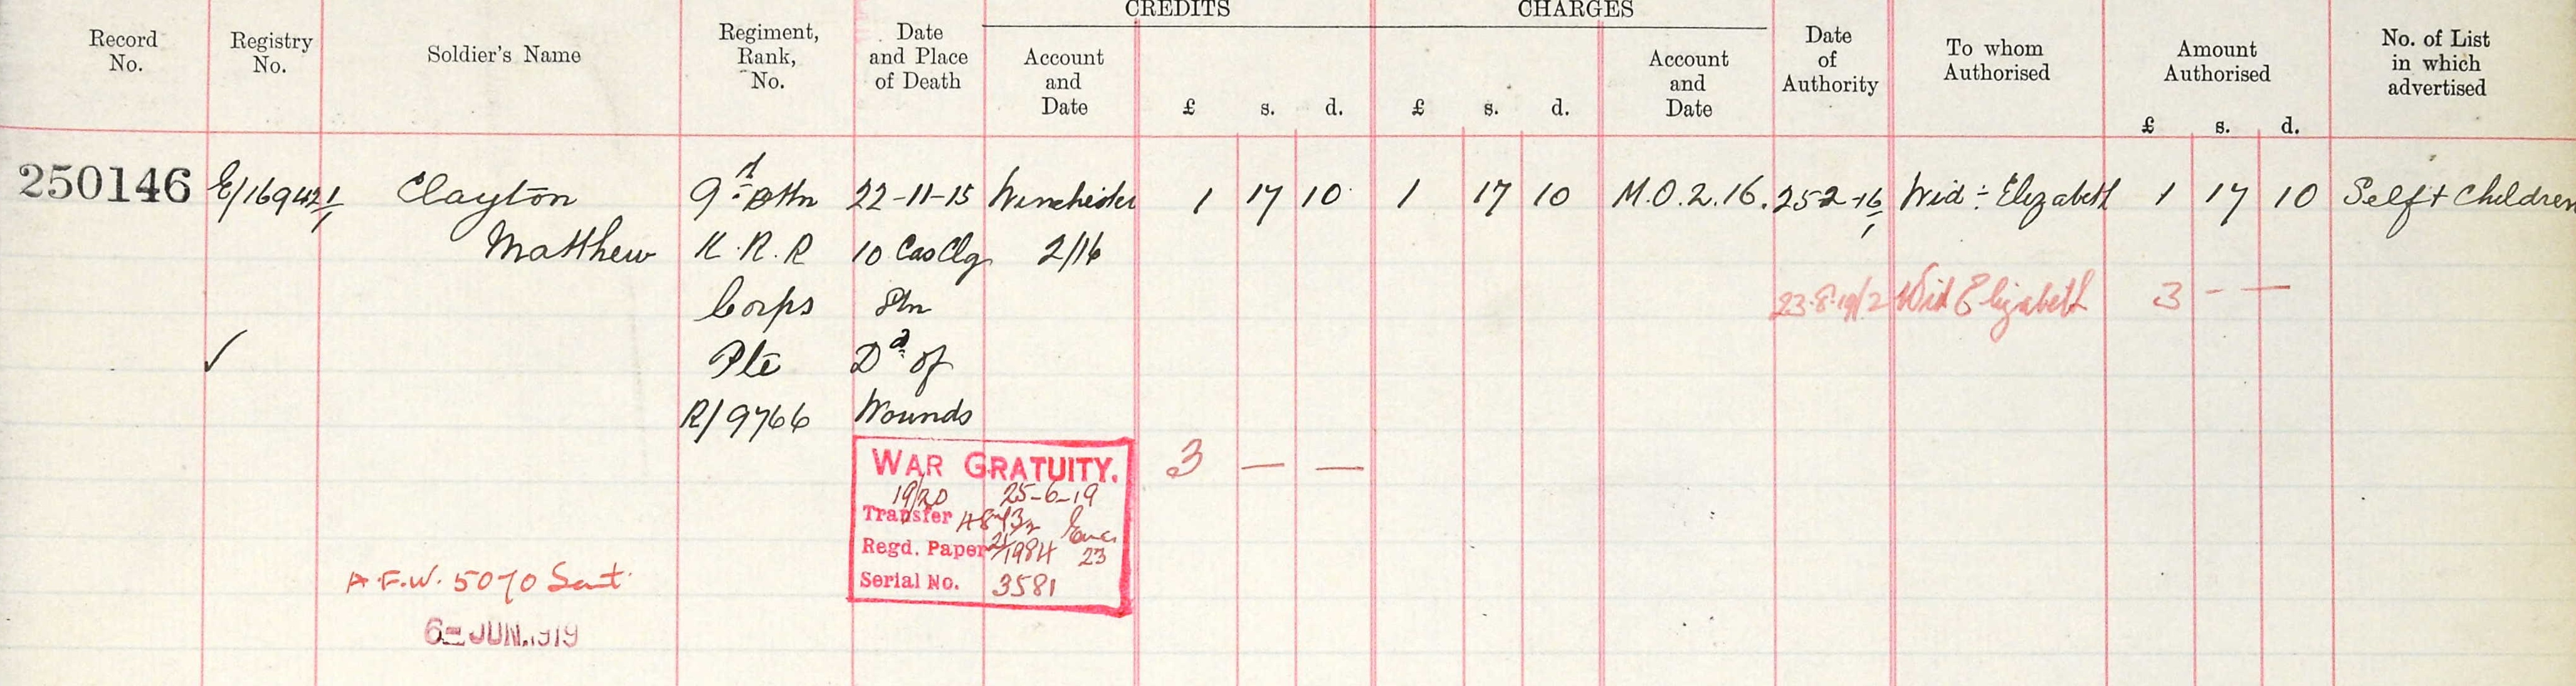 CREDITS CHARGES
Record No. Registry No. Soldier's Name Regiment, Rank, No. Date and Place of Death Account and Date £ s. d. £ s. d. Account and Date Date of Authority To whom Authorised Amount Authorised £ s. d. No. of List in which advertised
250146 E/169421/1 Clayton 9th Bttn 22-11-15 Winchester 1 17 10 1 17 10 M.O.2.16. 25-2-16 Wid: Elizabeth 1 17 10 Self + Children
Matthew K.R.R 10 Cas Clg 2/16
Corps Stn 23.8.19/2 Wid Elizabeth 3 - -
✓ Pte Dd of
R/9766 Wounds
WAR GRATUITY. 3 — —
19/20 25-6-19
Transfer
Regd. Paper 23
A.F.W. 5070 Sent. Serial No. 3581
6 - JUN. 1919